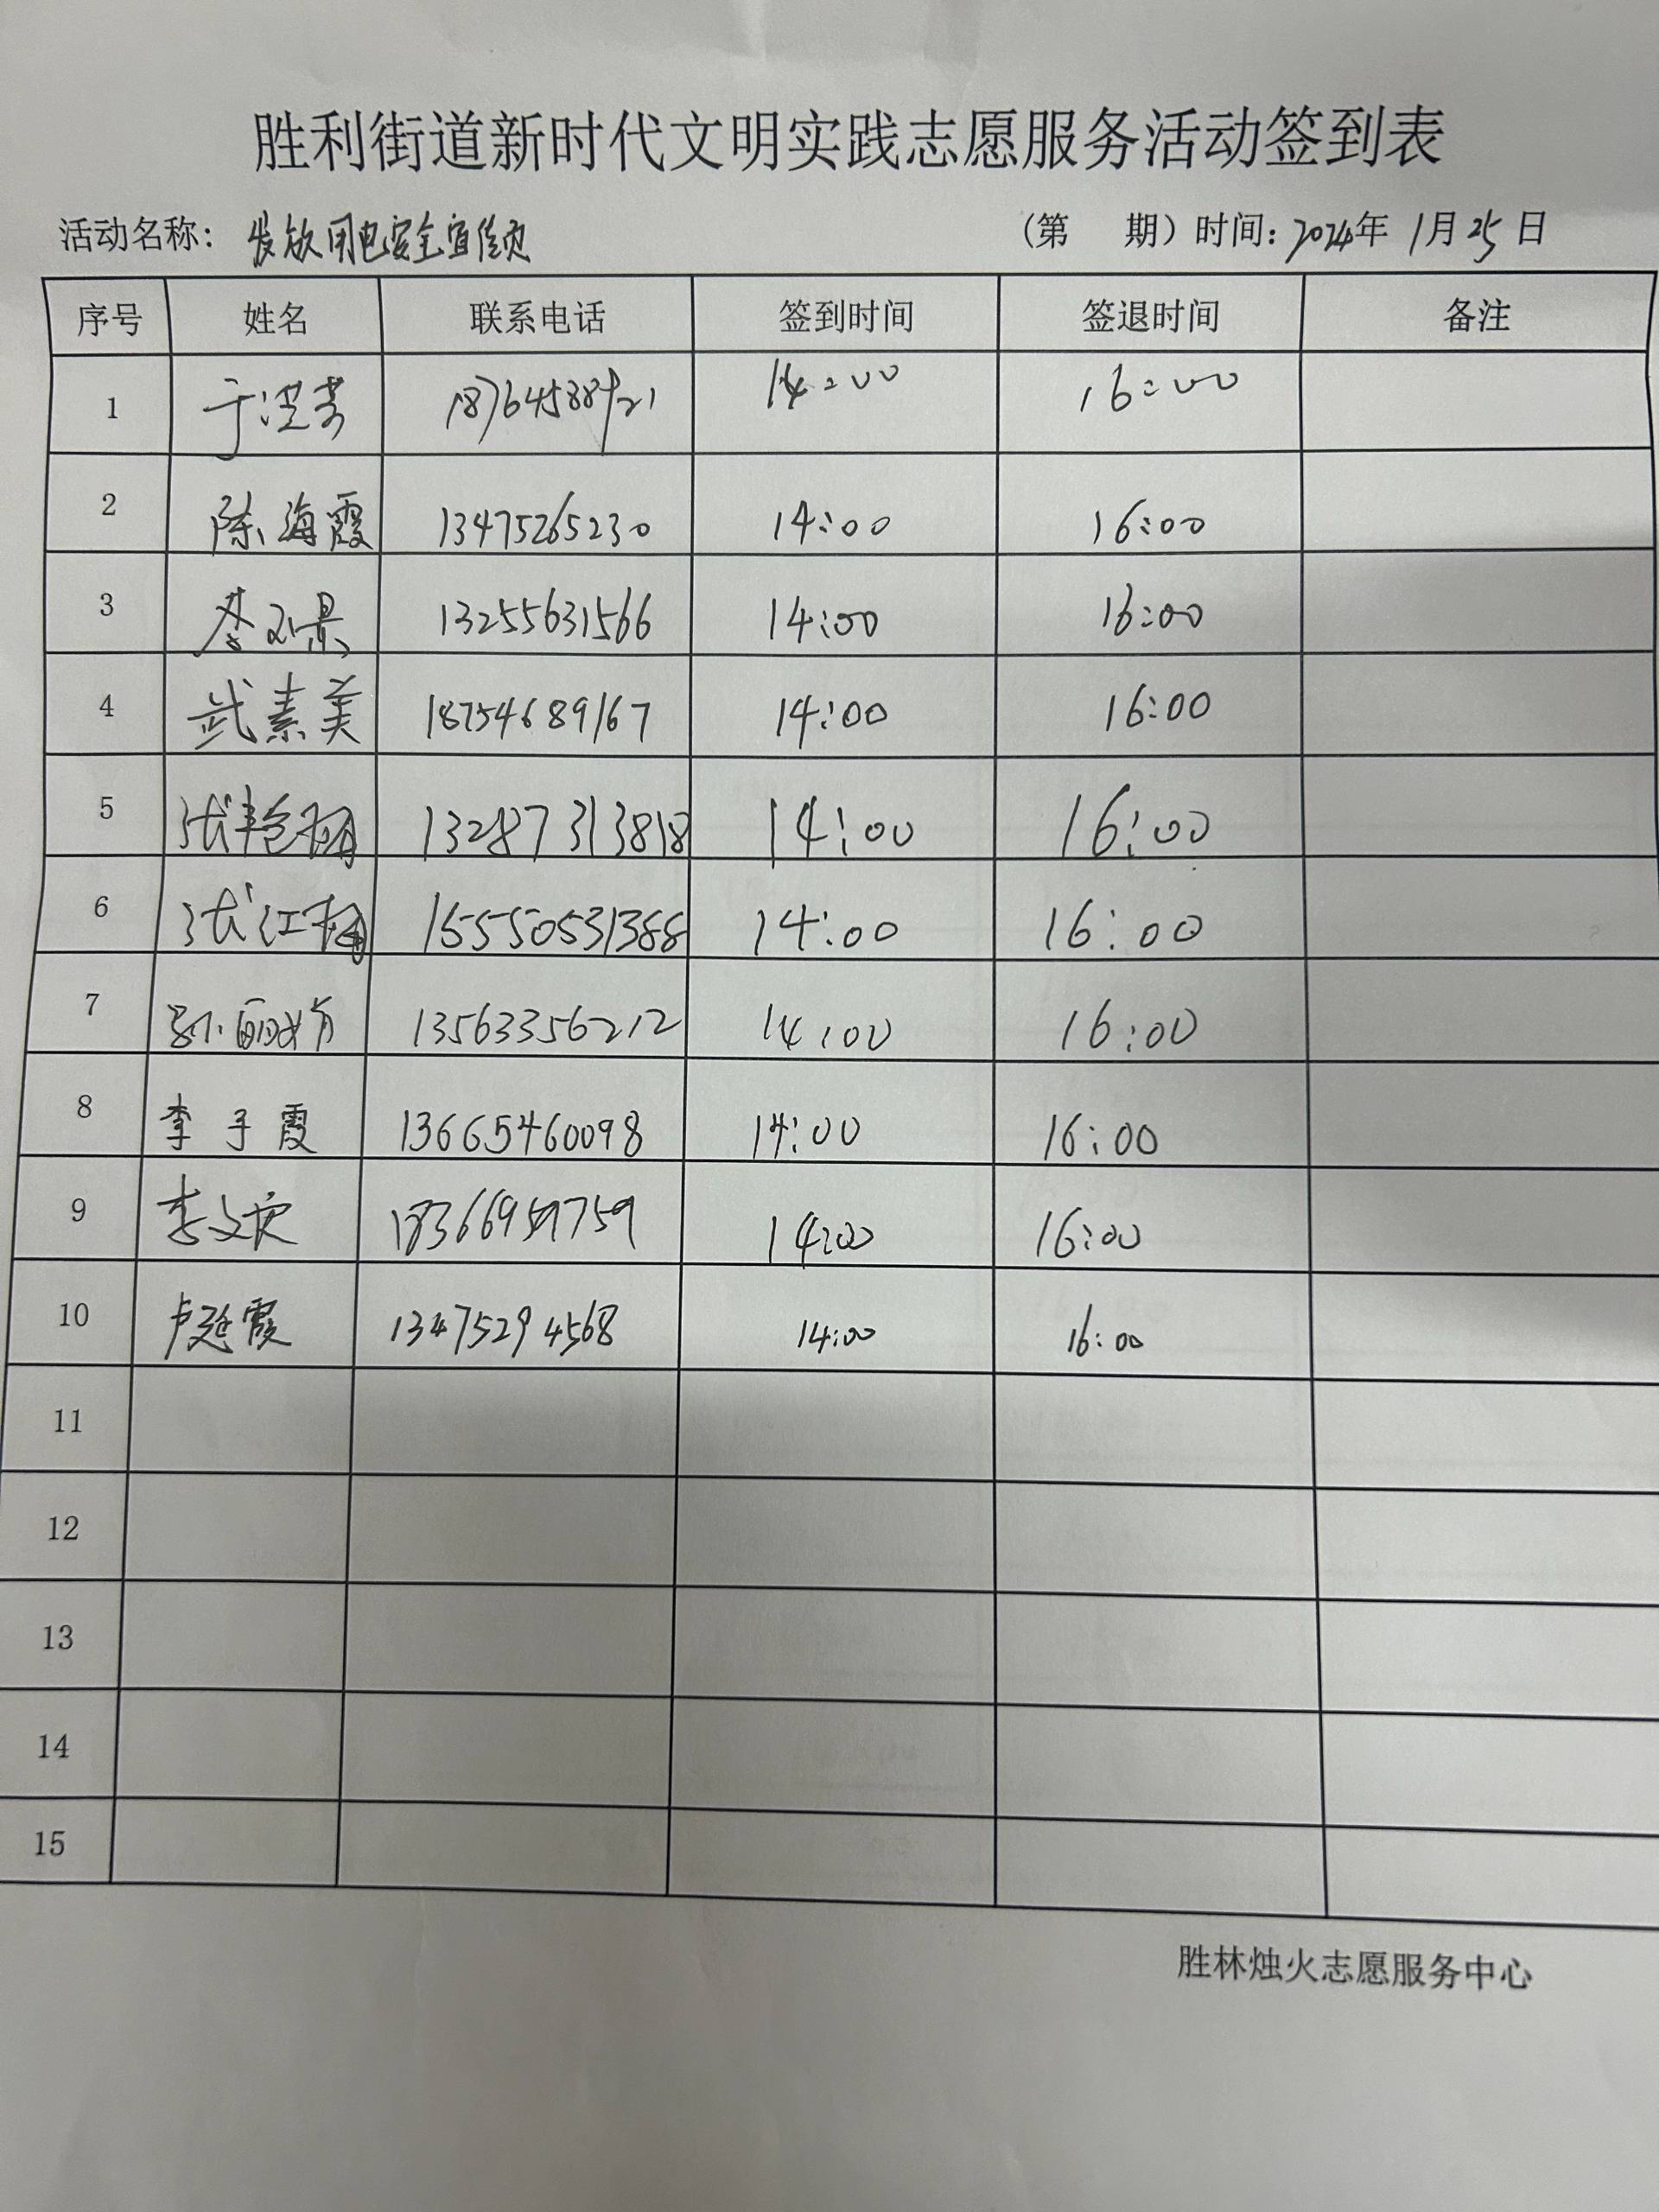 胜利街道新时代文明实践志愿服务活动签到表
活动名称: 发放用电安全宣传页 (第 期) 时间: 2024年 1月 25日
序号 姓名 联系电话 签到时间 签退时间 备注
1 于洪芳 14:00 16:00
2 陈海霞 13475265230 14:00 16:00
3 13255631566 14:00 16:00
4 武素美 18754689167 14:00 16:00
5 张艳丽 13287313818 14:00 16:00
6 张江梅 15550531388 14:00 16:00
7 孙丽娟 13563356212 14:00 16:00
8 李子霞 13665460098 14:00 16:00
9 李文庆 14:00 16:00
10 卢延霞 13475294568 14:00 16:00
11
12
13
14
15
胜林烛火志愿服务中心